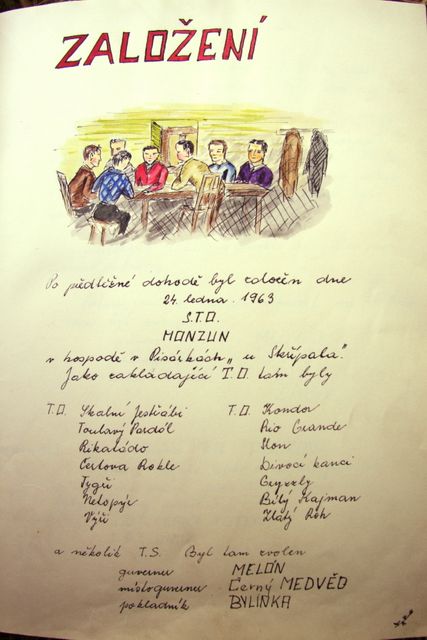 ZALOŽENÍ
Po předběžné dohodě byl založen dne
24. ledna. 1963
S.T.O.
MONZUN
v hospodě v Pisárkách „u Skřípala".
Jako zakládající T.O. tam byly
T.O. Skalní Jestřábi
Toulavý Pardál
Rikatádo
Čertova Rokle
Tygři
Netopýr
Výři
T.O. Kondor
Rio Grande
Slon
Divocí kanci
Gryzzly
Bílý Kajman
Zlatý Roh
a několik T.S. Byl tam zvolen
guverner MELOŃ
místoguverner Černý MEDVĚD
pokladník BYLINKA